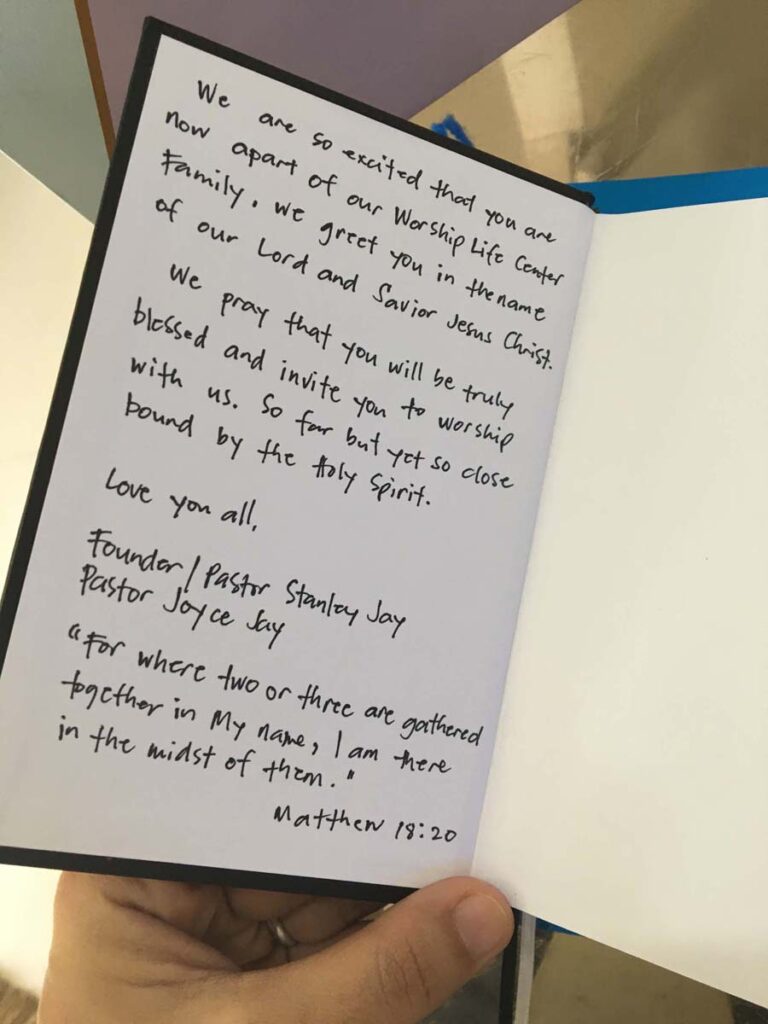 We are so excited that you are
now apart of our Worship Life Center
Family. We greet you in the name
of our Lord and Savior Jesus Christ.
We pray that you will be truly
blessed and invite you to worship
with us. So far but yet so close
bound by the Holy Spirit.
Love you all,
Founder/Pastor Stanley Jay
Pastor Joyce Jay
"For where two or three are gathered
together in My name, I am there
in the midst of them."
Matthew 18:20